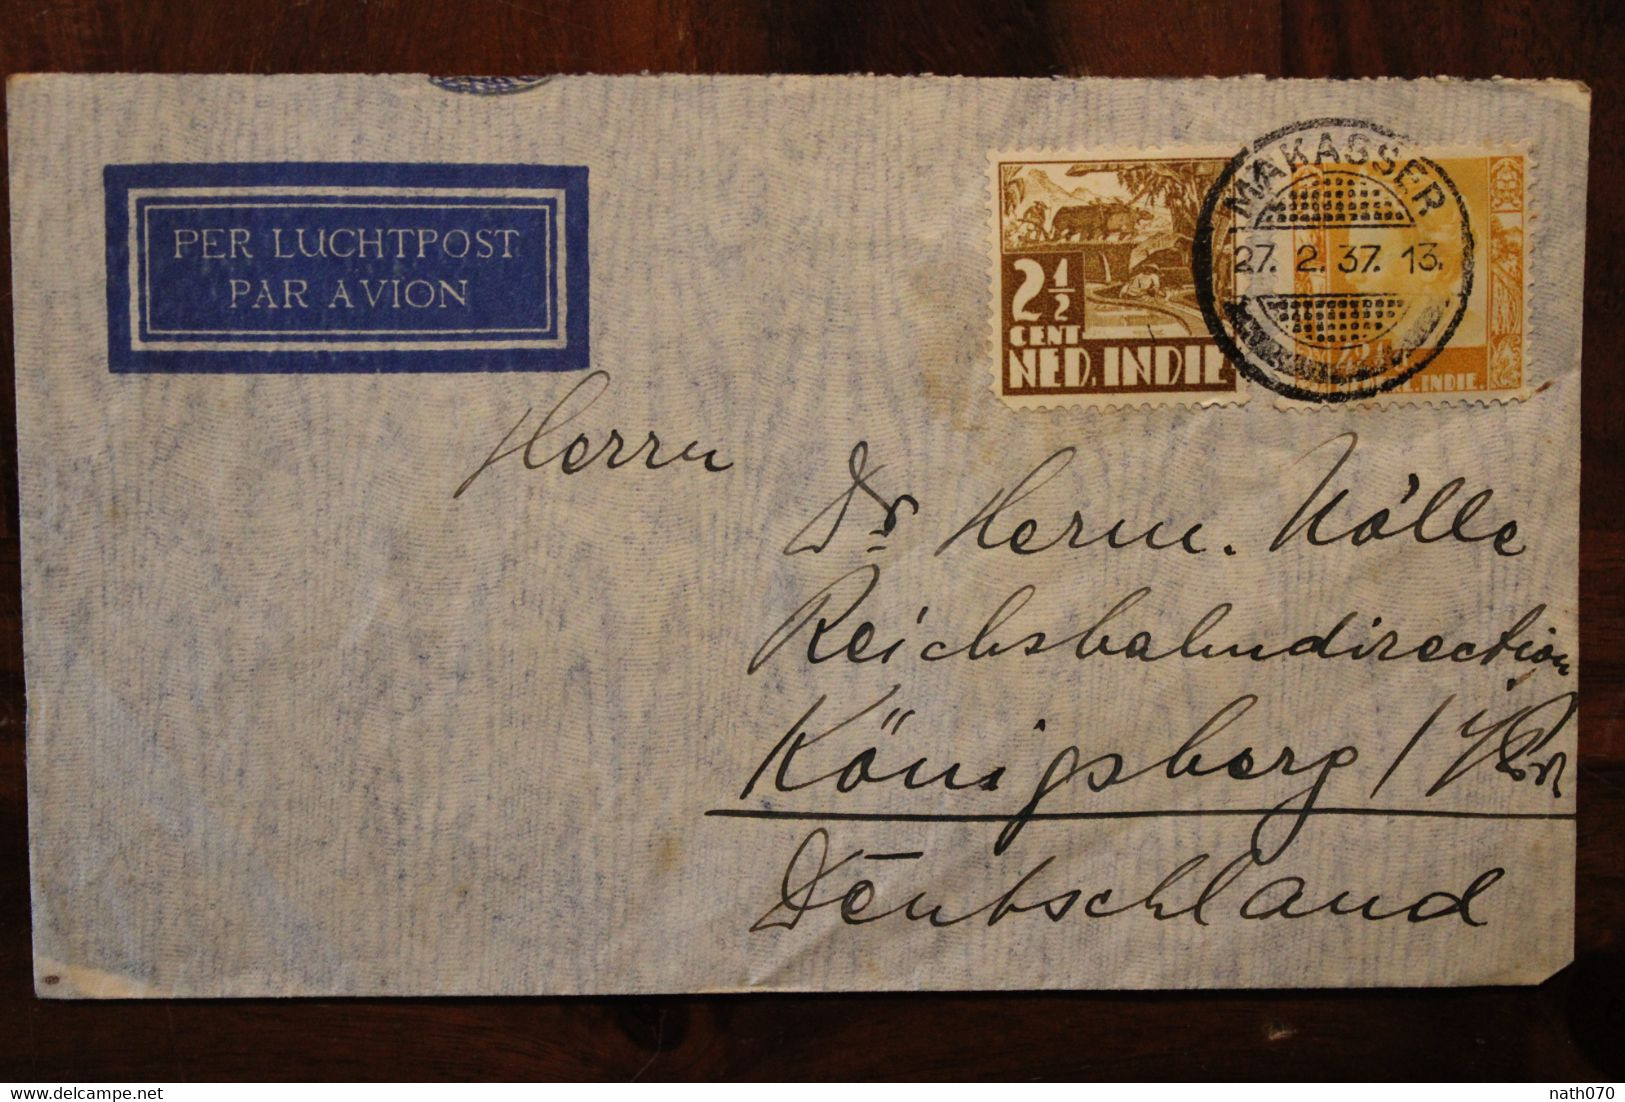 PER LUCHTPOST
PAR AVION
2 1/2
CENT
NED. INDIE
MAKASSER
27. 2. 37. 13.
INDIE.
Herrn
Dr Herm. Nölle
Reichsbahndirection
Königsberg / Pr
Deutschland
delcampe.net
nath070